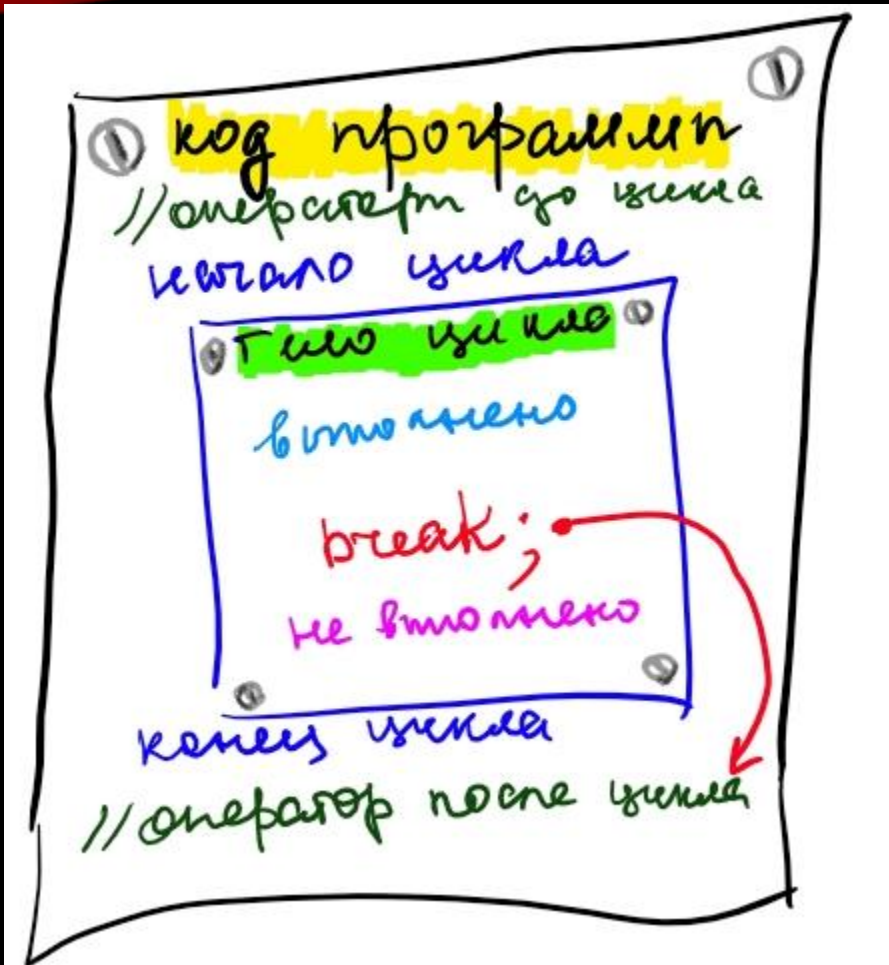 код программы
//операторы до цикла
начало цикла
тело цикла
выполнено
break;
не выполнено
конец цикла
//оператор после цикла